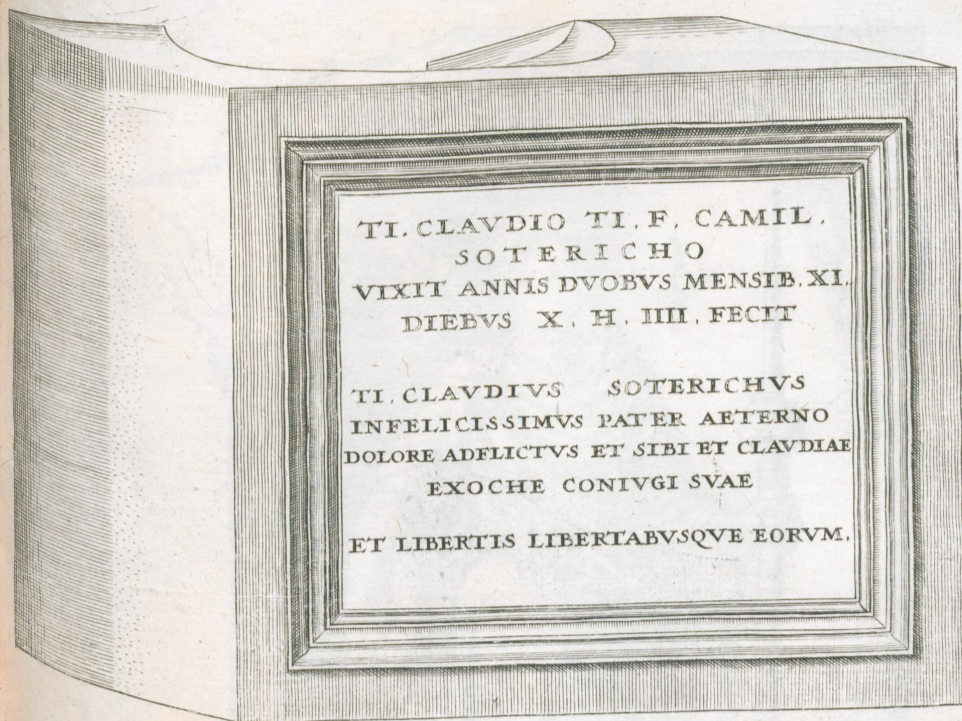 TI. CLAVDIO TI. F. CAMIL.
SOTERICHO
VIXIT ANNIS DVOBVS MENSIB. XI.
DIEBVS X. H. IIII. FECIT
TI. CLAVDIVS SOTERICHVS
INFELICISSIMVS PATER AETERNO
DOLORE ADFLICTVS ET SIBI ET CLAVDIAE
EXOCHE CONIVGI SVAE
ET LIBERTIS LIBERTABVSQVE EORVM.